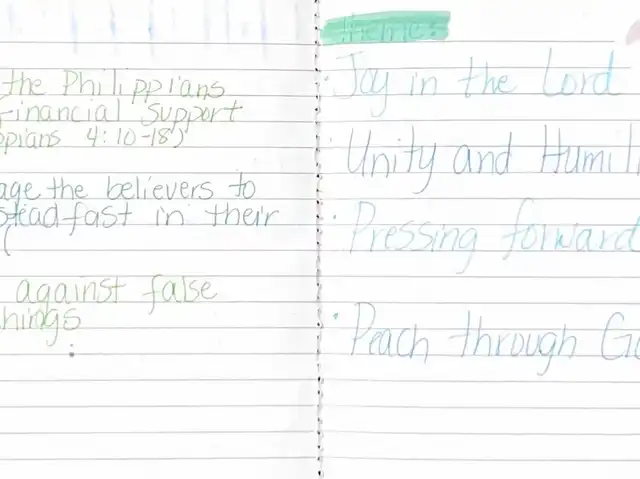 the Philippians
Financial Support
ppians 4:10-18)
age the believers to
steadfast in their
(
against false
hings
Themes
· Joy in the Lord
· Unity and Humili
· Pressing forward
· Peach through Go